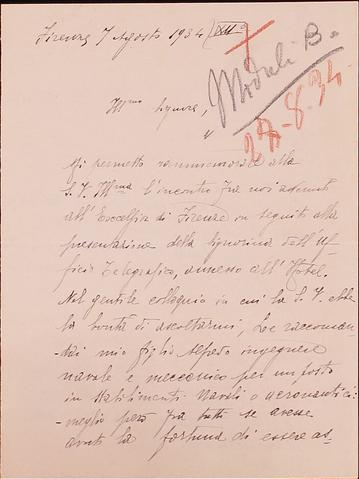 Firenze 7 Agosto 1934 (XII°)
Moduli B.
27-8-34
Ill.mo Signore,
Mi permetto rammemorare alla
S. V. Ill.ma l'incontro fra noi
all' Excelsior di Firenze in seguito alla
presentazione della signorina dell' Uf-
ficio Telegrafico, annesso all' Hotel.
Nel gentile colloquio in cui la S. V. ebbe
la bontà di ascoltarmi, Le raccoman-
dai mio figlio Alfredo ingegnere
navale e meccanico per un posto
in stabilimenti Navali o aeronautici:
meglio però fra tutti se avesse
avuto la fortuna di essere as-